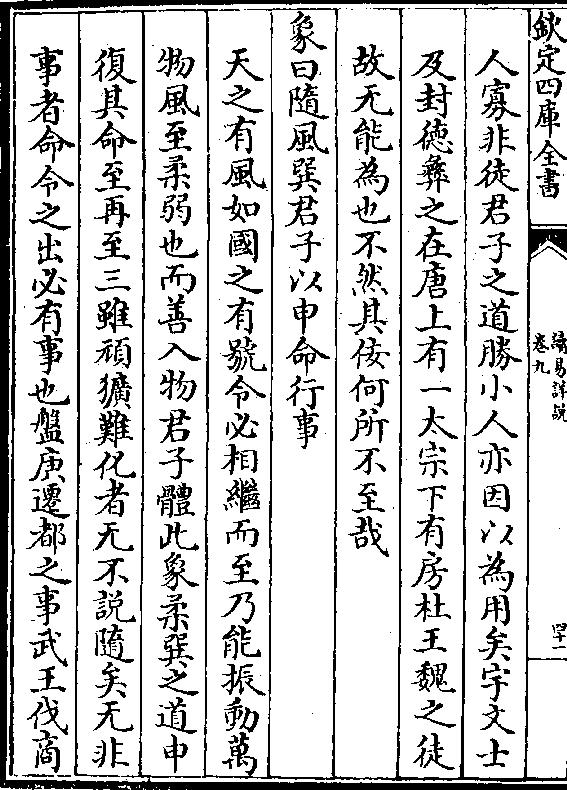 欽定四庫全書
讀易詳說
卷九
四十一
人寡非徒君子之道勝小人亦因以為用矣宇文士
及封德彝之在唐上有一太宗下有房杜王魏之徒
故无能為也不然其佞何所不至哉
象曰隨風巽君子以申命行事
天之有風如國之有號令必相繼而至乃能振動萬
物風至柔弱也而善入物君子體此象柔巽之道申
復其命至再至三雖頑獷難化者无不說隨矣无非
事者命令之出必有事也盤庚遷都之事武王伐商